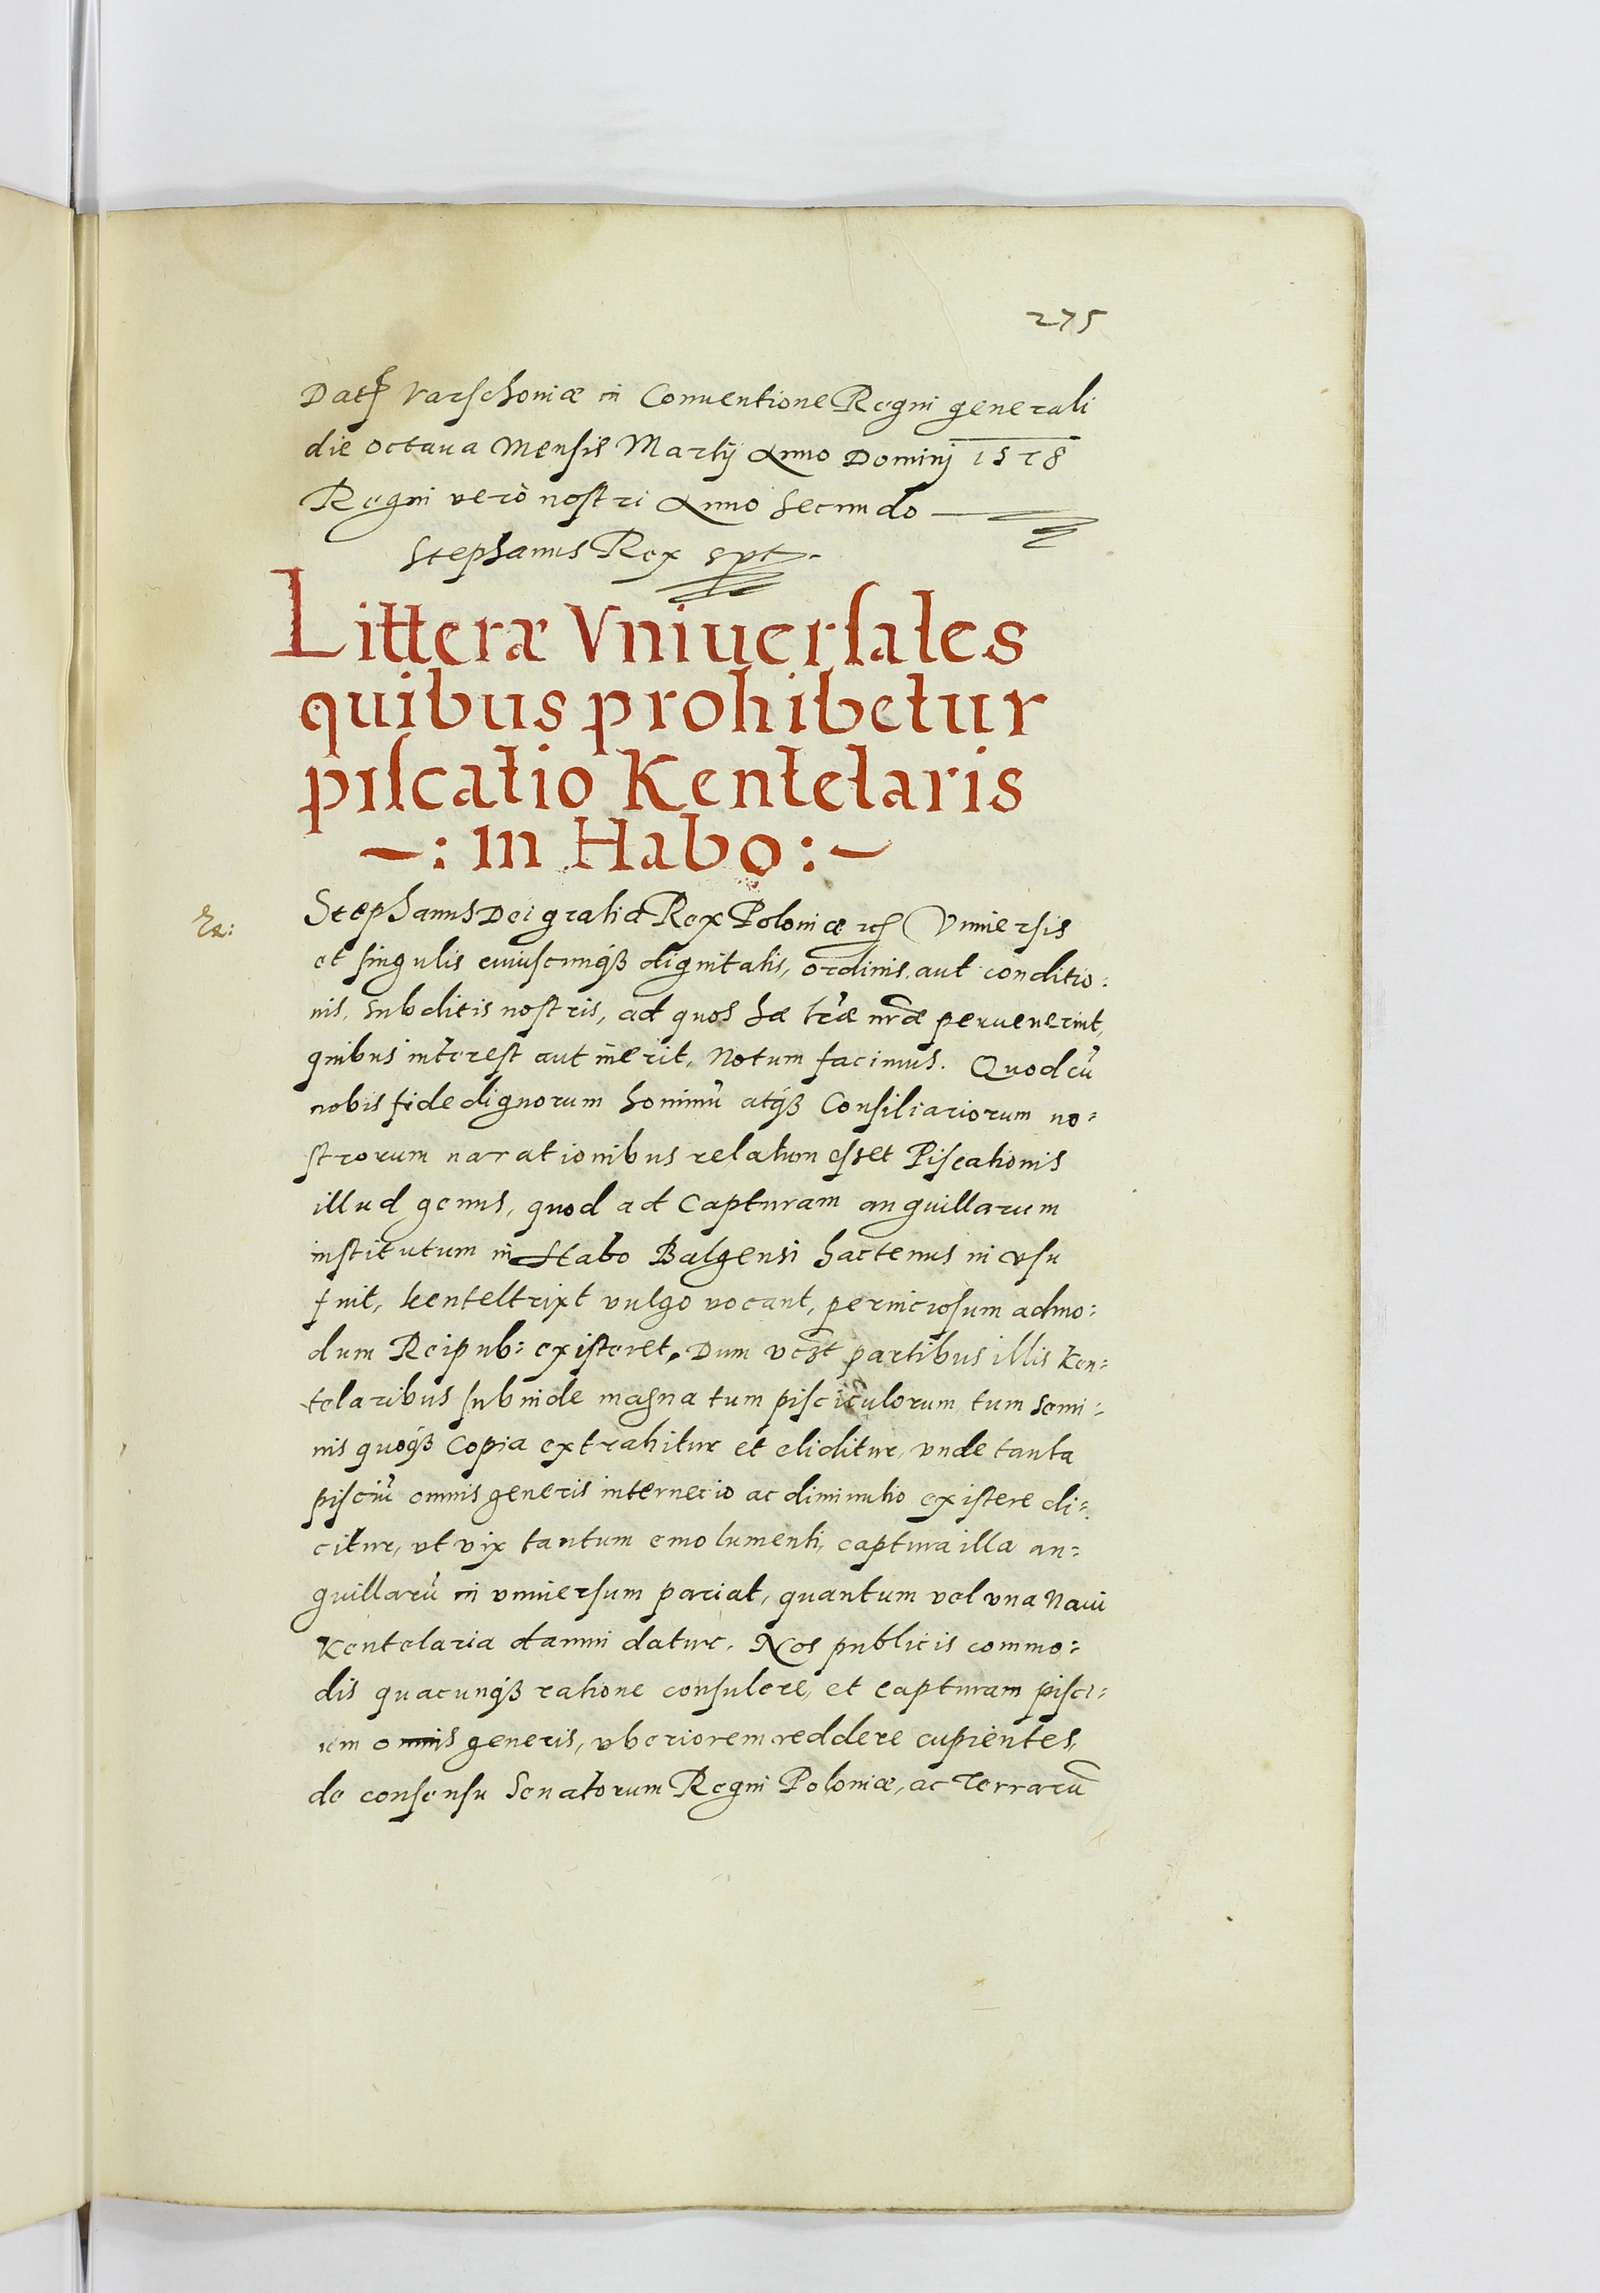 275
Datꝭ Varschoniæ in Conuentione Regni generali
die octaua Mensis Martij Anno Dominj 1578
Regni verò nostri Anno Secundo
Stephanus Rex sp̅t
Litteræ Vniuersales
quibus prohibetur
piscatio Kentelaris
–: in Habo :–
Stephanus Dei gratia Rex Poloniæ ꝛcꝭ Vniuersis
et singulis cuiuscunqꝫ dignitatis, ordinis, aut conditio:
nis, subditis nostris, ad quos hæ lr̃æ nrãe peruenerint,
quibus interest aut inerit, Notum facimus. Quod cũ
nobis fide dignorum hominũ atqꝫ Consiliariorum no:
strorum narationibus relatum esset Piscationis
illud genus, quod ad Capturam anguillarum
institutum in Habo Balgensi hactenus in vsu
fuit, kenteltrixt vulgo vocant, perniciosum admo:
dum Reipub: existeret. Dum partibus illis Ken:
telaribus subinde magna tum pisciculorum tum semi:
nis quoqꝫ Copia extrahitur et eliditur, vnde tanta
pisciũ omnis generis internecio ac diminutio existere di:
citur, vt vix tantum emolumenti, captura illa an:
guillarũ in vniuersum pariat, quantum vel vna Naui
Kentelaria damni datur. Nos publicis commo:
dis quacunqꝫ ratione consulere, et capturam pisci:
um omnis generis, vberiorem reddere cupientes,
de consensu Senatorum Regni Poloniæ, ac Terrarũ